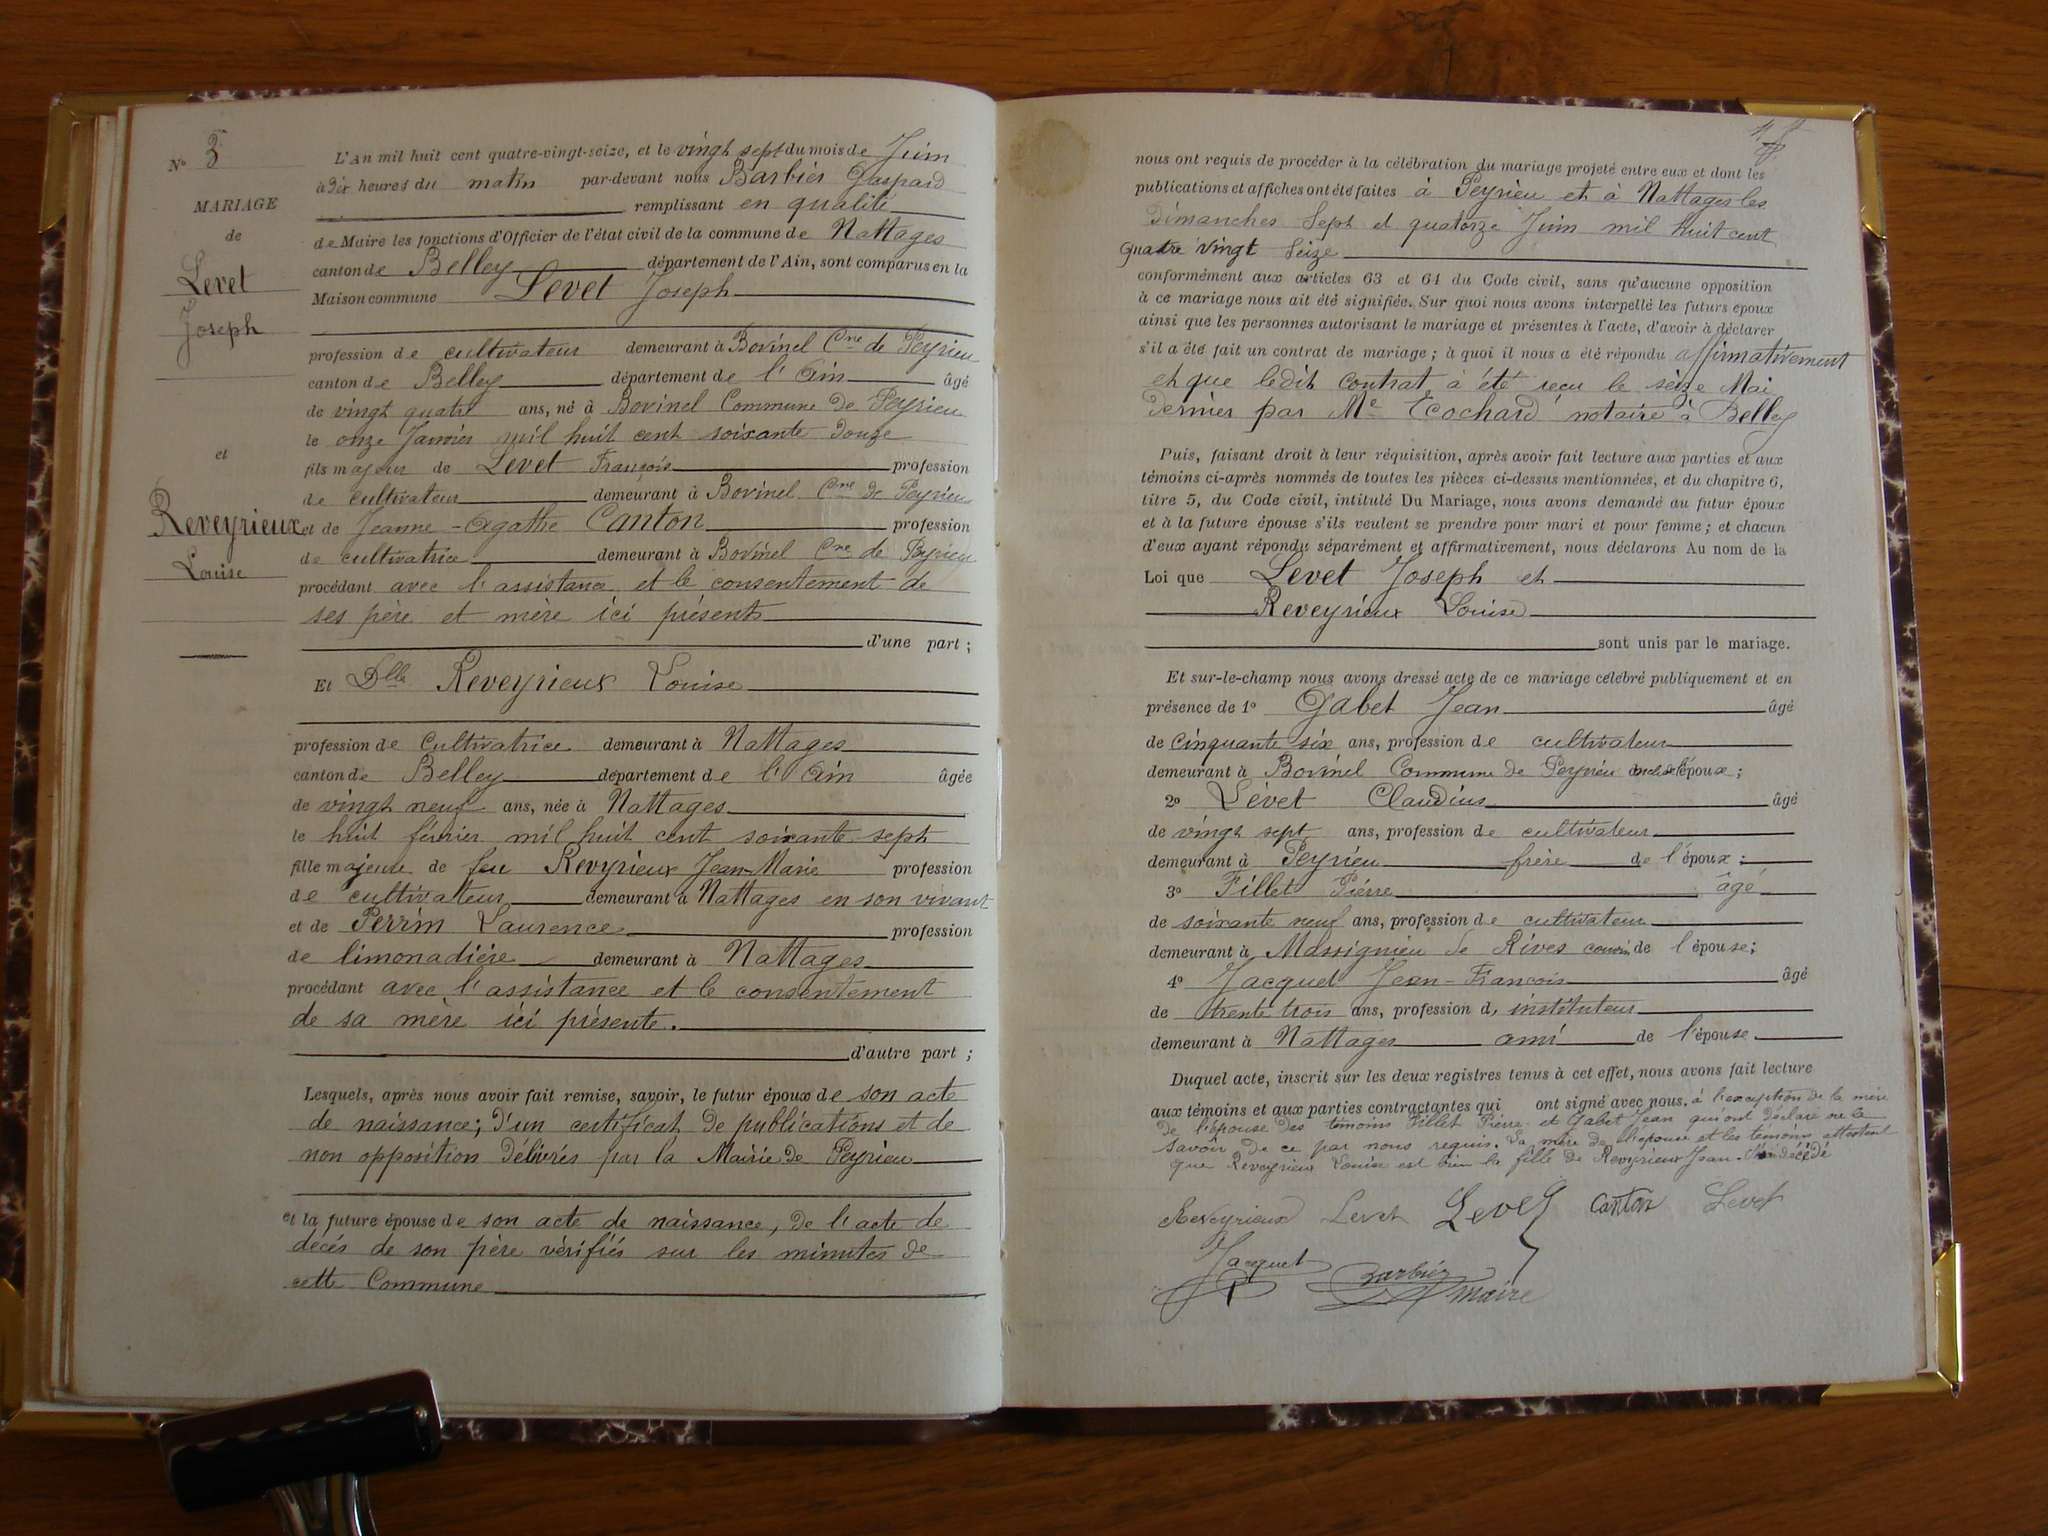 N° 3
MARIAGE
de
Levet
Joseph
et
Reveyrieux
Louise
L'An mil huit cent quatre-vingt-seize, et le vingt sept du mois de Juin
à dix heures du matin par-devant nous Barbier Gaspard
remplissant en qualité
de Maire les fonctions d'Officier de l'état civil de la commune de Nattages
canton de Belley département de l'Ain, sont comparus en la
Maison commune Levet Joseph
profession de cultivateur demeurant à Bovinel Cne de Peyrieu
canton de Belley département de l'Ain âgé
de vingt quatre ans, né à Bovinel Commune de Peyrieu
le onze Janvier mil huit cent soixante douze
fils majeur de Levet François profession
de cultivateur demeurant à Bovinel Cne de Peyrieu
et de Jeanne-Agathe Canton profession
de cultivatrice demeurant à Bovinel Cne de Peyrieu
procédant avec l'assistance et le consentement de
ses père et mère ici présents
d'une part ;
Et Dlle Reveyrieux Louise
profession de Cultivatrice demeurant à Nattages
canton de Belley département de l'Ain âgée
de vingt neuf ans, née à Nattages
le huit février mil huit cent soixante sept
fille majeure de feu Revyrieux Jean-Marie profession
de cultivateur demeurant à Nattages en son vivant
et de Perrin Laurence profession
de limonadière demeurant à Nattages
procédant avec l'assistance et le consentement
de sa mère ici présente.
d'autre part ;
Lesquels, après nous avoir fait remise, savoir, le futur époux de son acte
de naissance; d'un certificat de publications et de
non opposition délivrés par la Mairie de Peyrieu
et la future épouse de son acte de naissance, de l'acte de
décés de son père vérifiés sur les minutes de
cette Commune
nous ont requis de procéder à la célébration du mariage projeté entre eux et dont les
publications et affiches ont été faites à Peyrieu et à Nattages les
Dimanches Sept et quatorze Juin mil huit cent
quatre vingt Seize
conformément aux articles 63 et 64 du Code civil, sans qu'aucune opposition
à ce mariage nous ait été signifiée. Sur quoi nous avons interpellé les futurs époux
ainsi que les personnes autorisant le mariage et présentes à l'acte, d'avoir à déclarer
s'il a été fait un contrat de mariage ; à quoi il nous a été répondu affirmativement
et que ledit contrat à été reçu le seize Mai
dernier par Me Ecochard notaire à Belley
Puis, faisant droit à leur réquisition, après avoir fait lecture aux parties et aux
témoins ci-après nommés de toutes les pièces ci-dessus mentionnées, et du chapitre 6,
titre 5, du Code civil, intitulé Du Mariage, nous avons demandé au futur époux
et à la future épouse s'ils veulent se prendre pour mari et pour femme ; et chacun
d'eux ayant répondu séparément et affirmativement, nous déclarons Au nom de la
Loi que Levet Joseph et
Reveyrieux Louise
sont unis par le mariage.
Et sur-le-champ nous avons dressé acte de ce mariage célébré publiquement et en
présence de 1° Gabet Jean âgé
de cinquante six ans, profession de cultivateur
demeurant à Bovinel Commune de Peyrieu oncle de l'époux ;
2° Lévet Claudius âgé
de vingt sept ans, profession de cultivateur
demeurant à Peyrieu frère de l'époux :
3° Fillet Piérre âgé
de soixante neuf ans, profession de cultivateur
demeurant à Massignieu de Rives cousin de l'épouse;
4° Jacquet Jean-François âgé
de trente trois ans, profession d, instituteur
demeurant à Nattages ami de l'épouse.
Duquel acte, inscrit sur les deux registres tenus à cet effet, nous avons fait lecture
aux témoins et aux parties contractantes qui ont signé avec nous, à l'exception de la mère
de l'épouse des témoins Fillet Pierre et Gabet Jean qui ont déclaré ne le
savoir de ce par nous requis. La mère de l'épouse et les témoins attestent
que Reveyrieux Louise est bien la fille de Reveyrieux Jean-Marie décédé
Reveyrieux Levet Levet Canton Levet
Jacquet Barbier
maire